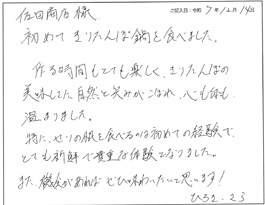 ご記入日：令和 7年 12月 14日
佐田商店 様
初めて きりたんぽ鍋を食べました。
作る時間もとても楽しく、きりたんぽの
美味しさに自然と笑みがこぼれ、心も体も
温まりました。
特に、せりの根を食べるのは初めての経験で、
とても新鮮で貴重な体験となりました。
また、機会があれば ぜひ味わいたいと思います！